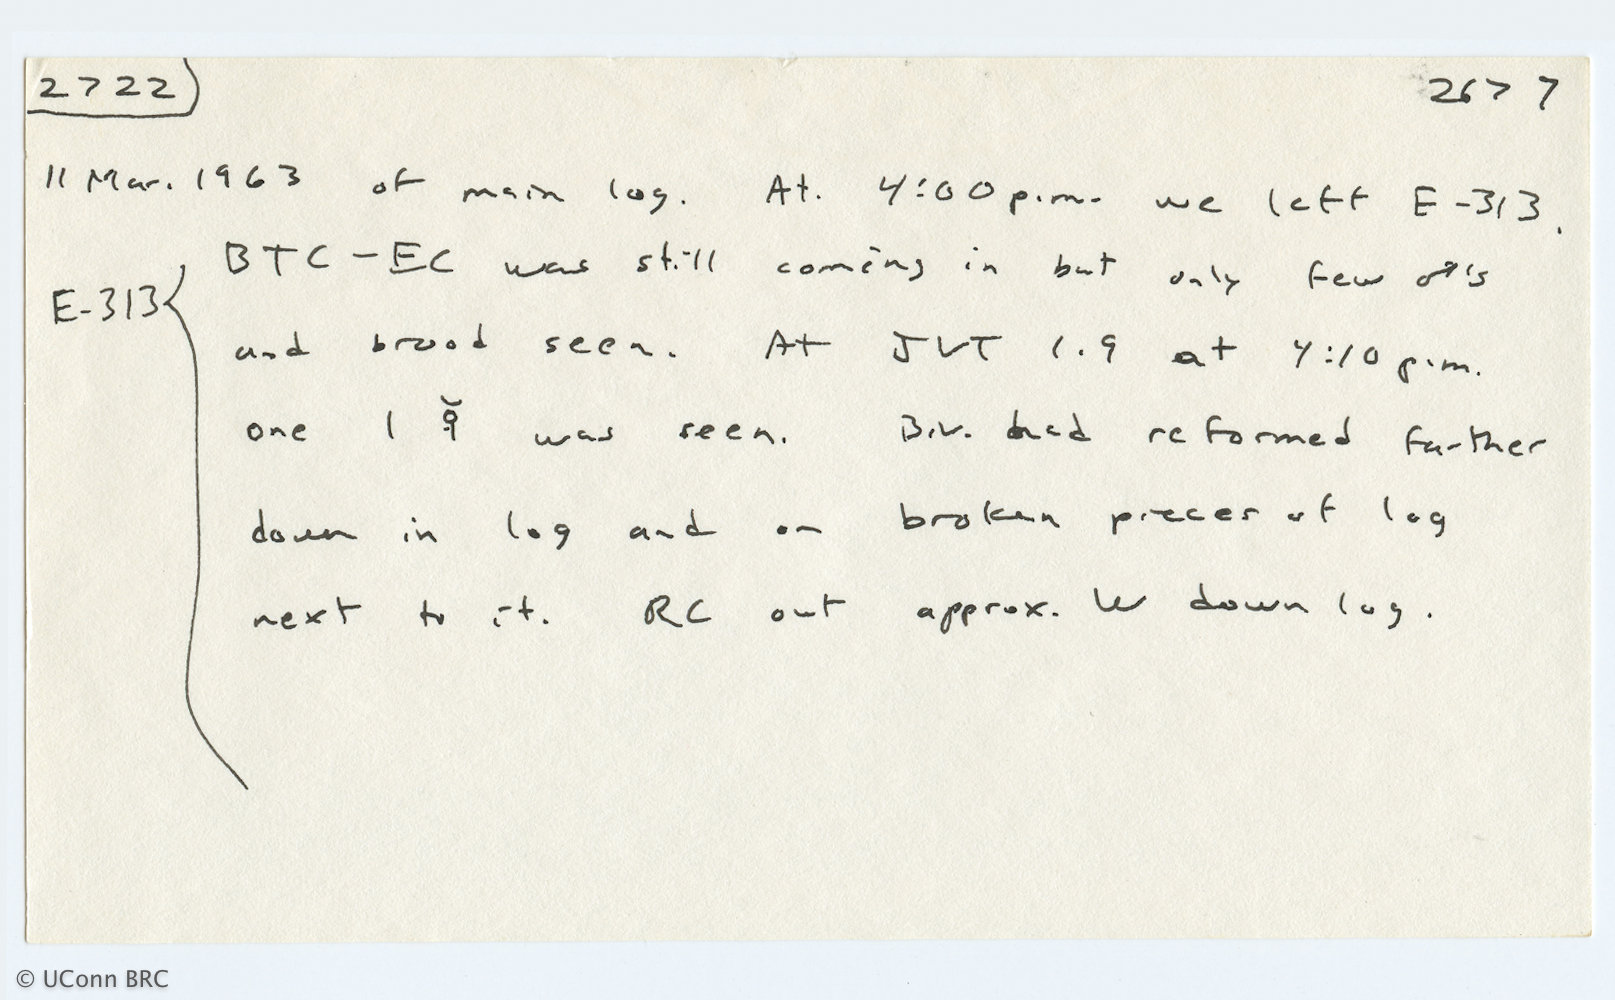 2722
2677
11 Mar. 1963 of main log. At. 4:00 p.m. we left E-313.
E-313
BTC-EC was still coming in but only few ♂'s
and brood seen. At JVT 1.9 at 4:10 p.m.
one 1 ♀̆ was seen. Biv. had reformed farther
down in log and on broken pieces of log
next to it. RC out approx. W down log.
© UConn BRC